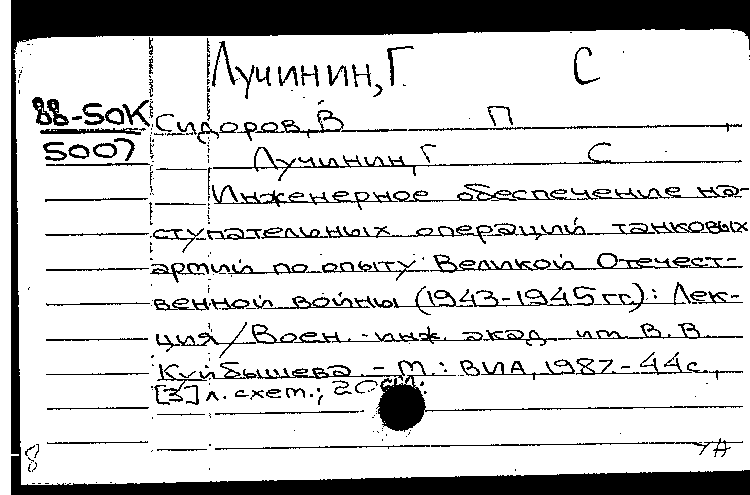 Лучинин, Г С
88-50К
5007
Сидоров, В П
Лучинин, Г С
Инженерное обеспечение на-
ступательных операций танковых
армий по опыту Великой Отечест-
венной войны (1943-1945 гг.): Лек-
ция / Воен.-инж. акад. им. В. В.
Куйбышева. - М.: ВИА, 1987. - 44 с.,
[3] л. схем.; 20 см.
8